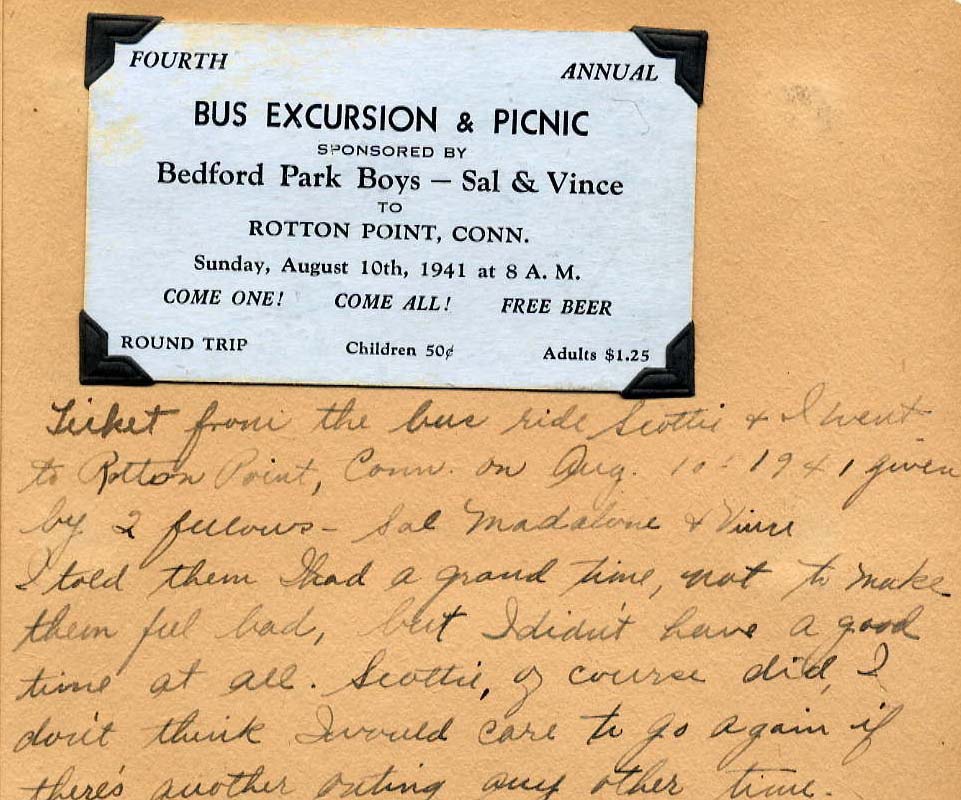 FOURTH ANNUAL
BUS EXCURSION & PICNIC
SPONSORED BY
Bedford Park Boys — Sal & Vince
TO
ROTTON POINT, CONN.
Sunday, August 10th, 1941 at 8 A. M.
COME ONE! COME ALL! FREE BEER
ROUND TRIP Children 50¢ Adults $1.25
Ticket from the bus ride Scottie & I went
to Rotton Point, Conn. on Aug. 10 - 1941 given
by 2 fellows - Sal Madalone & Vince
I told them I had a grand time, not to make
them feel bad, but I didn't have a good
time at all. Scottie, of course did, I
don't think I would care to go again if
there's another outing any other time.